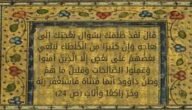 قال لقد ظلمك بسؤال نعجتك إلى
نعاجه وإن كثيرا من الخلطاء ليبغي
بعضهم على بعض إلا الذين آمنوا
وعملوا الصالحات وقليل ما هم
وظن داوود أنما فتناه فاستغفر ربه
وخر راكعا وأناب (ص:24)